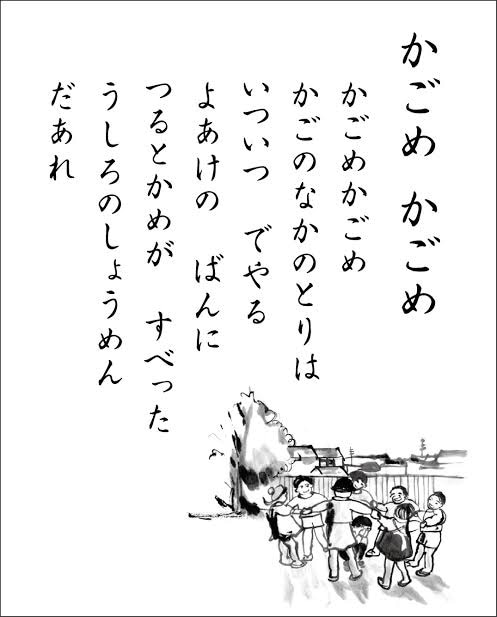 かごめ　かごめ
かごめかごめ
かごのなかのとりは
いついつ　でやる
よあけの　ばんに
つるとかめが　すべった
うしろのしょうめん
だあれ